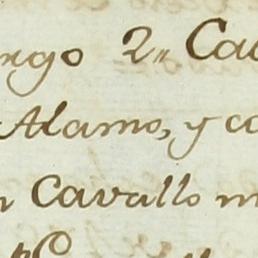 ngo 2" Cac
Alamo, y co
n Cavallo m